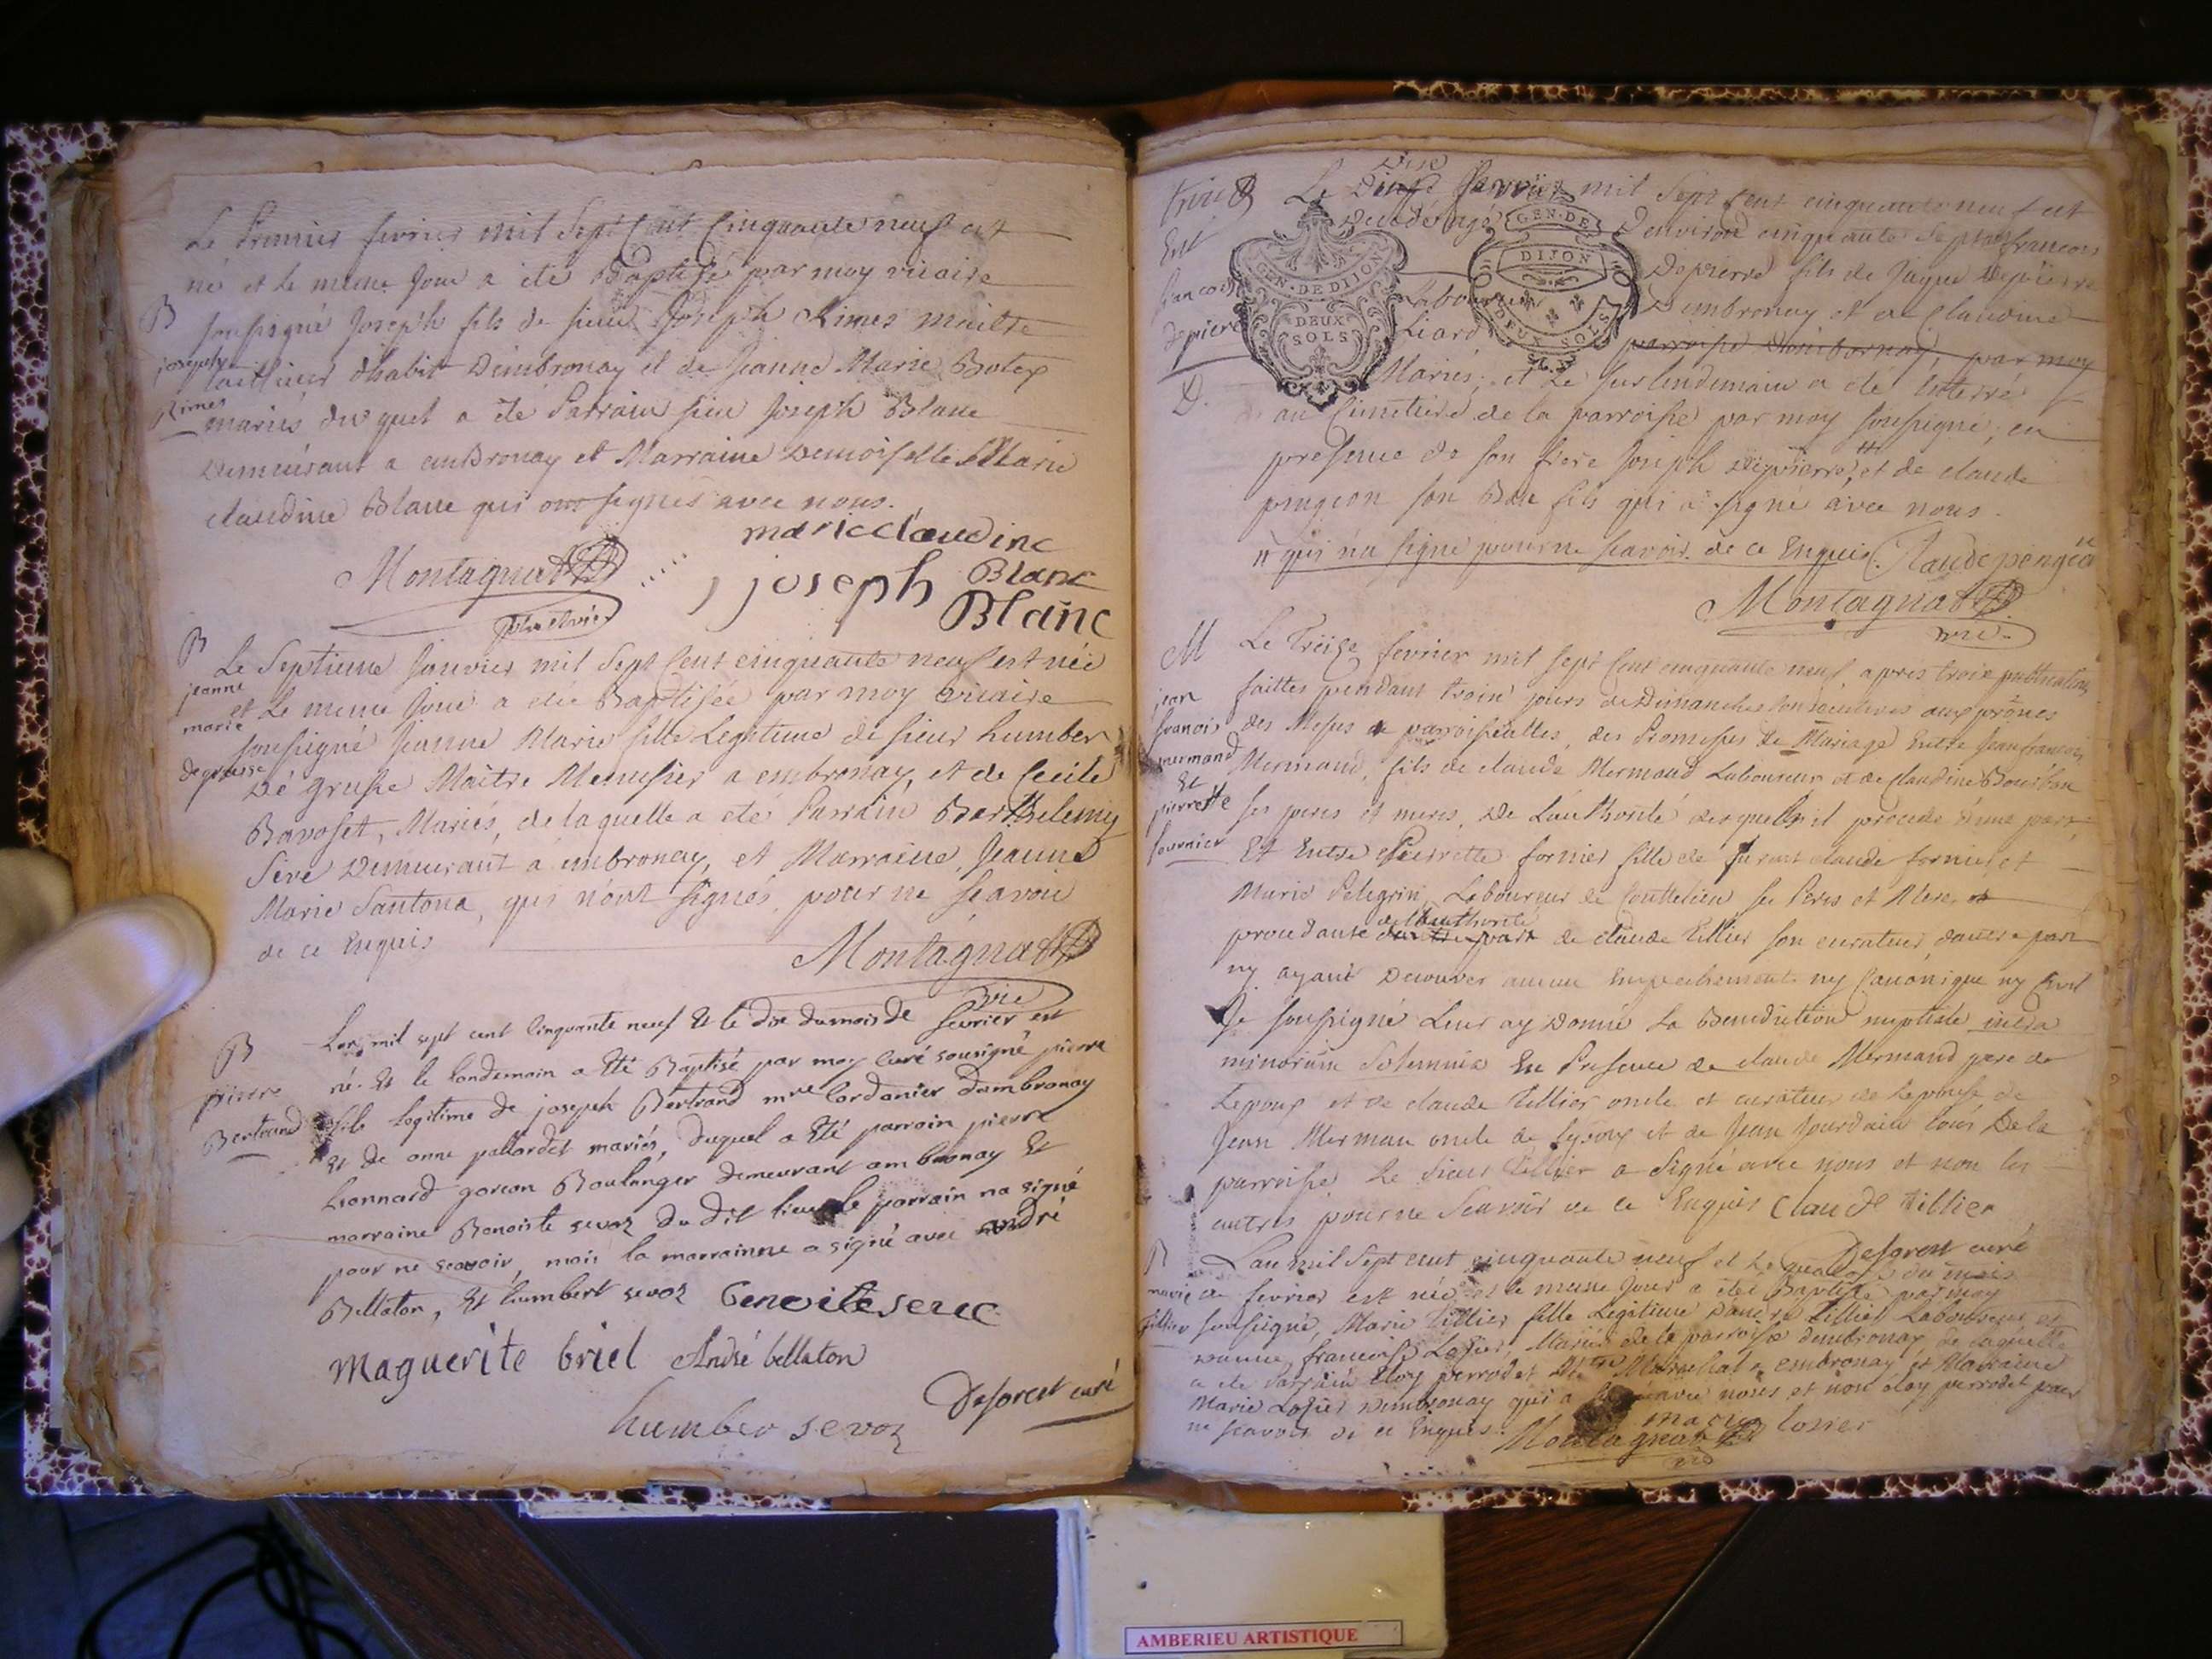 Le Premier fevrier mil Sept Cent Cinquante neuf est
né et le meme Jour a eté Baptisé par moy vicaire
B
soussigné Joseph fils de sieur Joseph Rimes maitre
joseph
tailleur dhabit Dembronay et de Jeanne Marie Botex
Rimes
mariés duquel a eté Parrain sieur Joseph Blanc
Demeurant a embronay et Marraine Demoiselle Marie
claudine Blanc qui ont signés avec nous.
marie claudine
Blanc
Montagnat
joseph
Blanc
B
Le Septieme Janvier mil Sept Cent cinquante neuf est née
jeanne
et le meme Jour a eté Baptisée par moy vicaire
marie
soussigné Jeanne Marie fille Legitime de sieur humber
degrusse
Dé grusse Maitre Menusier a embronay, et de Cecile
Bavoset, Mariés, de laquelle a eté Parrain Barthelemy
Séve Demeurant a embronay, et Marraine Jeanne
Marie Santona, qui n'ont signés, pour ne scavoir
de ce Enquis
Montagnat
vic
B
Lan mil sept cent cinquante neuf Et le dix du mois de fevrier est
né. Et le landemain a Eté Baptisé par moy curé sousigné pierre
pierre
Bertrand
fils legitime de joseph Bertrand mre Cordonier dambronay
Et de anne pallordet mariés, duquel a Eté parrain pierre
Lionnard garcon Boulanger demeurant ambronay Et
marraine Benoiste sevoz du dit lieu le parrain na signé
pour ne scavoir, mais la marrainne a signé avec andré
Bellaton, Et humbert sevoz Benoite seuoc
Maguerite briel André bellaton
Deforest curé
humber sevoz
Dix
Le Janvier mil Sept Cent cinquante neuf est
Est
Decedé agé D'environ cinquante Sept ans francois
francois
Depierre fils de Jaque Depierre
depierre
Laboureur Dembronay et de Claudine
Liard parroisse dembornay, par moy
D.
Mariés, et le surlendemain a eté enterré
au Cimetiere de la parroisse par moy soussigné, en
presence de son frere Joseph depierre, # et de claude
pingeon son Bau fils qui a signé avec nous.
# qui na signé pour ne scavoir de ce Enquis. Claude pengon
Montagnat
vic.
M
Le Treize fevrier mil sept Cent cinquante neuf, apres trois publications
jean
faittes pendant trois jours de Dimanches consecutives aux prônes
francois
des Messes parroissialles, des Promesses de Mariage Entre Jean francois
mermand
Mermand, fils de claude Mermand Laboureur et de claudine Bourbon
Et
pierrette
ses peres et meres, De L'authorité desquels il procede d'une part,
fournier
Et Entre Pierrette fornier fille de claude fornier et
Marie Pelegrin, Laboureur de Couttelieu ses Peres et Mere
de l'authorité
procedante d'autre part de claude tillier son curateur dautre part
ny ayant Decouver aucun Empechement ny Canonique ny Civil
Je soussigné Leur ay Donné la Benediction nuptiale
En Presence de claude Mermand pere de
Lepoux et de claude tillier oncle et curateur de Lepouse de
Jean Merman oncle de Lepoux et de Jean Jourdain tous De la
parroisse Le sieur tillier a Signé avec nous et non les
autres pour ne Scavoir de ce Enquis Claude tillier
Deforest curé
B
Lan mil Sept cent cinquante neuf et le du mois
marie
de fevrier est née et le meme Jour a eté Baptisée par moy
tillier
soussigné, Marie tillier fille Legitime d'andre tillier Laboureur et
danne francoise Losier, Mariés de la parroisse dembronay de laquelle
a eté Parrain Eloy perrodet Mtre Marechal a embronay et Marraine
Marie Losier Dembronay qui a signé avec nous et non éloy perrodet pour
ne scavoir de ce Enquis.
marie losier
Montagnat
vic
GEN·DE DIJON
DEUX
SOLS
GEN·DE
DIJON
DEUX SOLS
AMBERIEU ARTISTIQUE